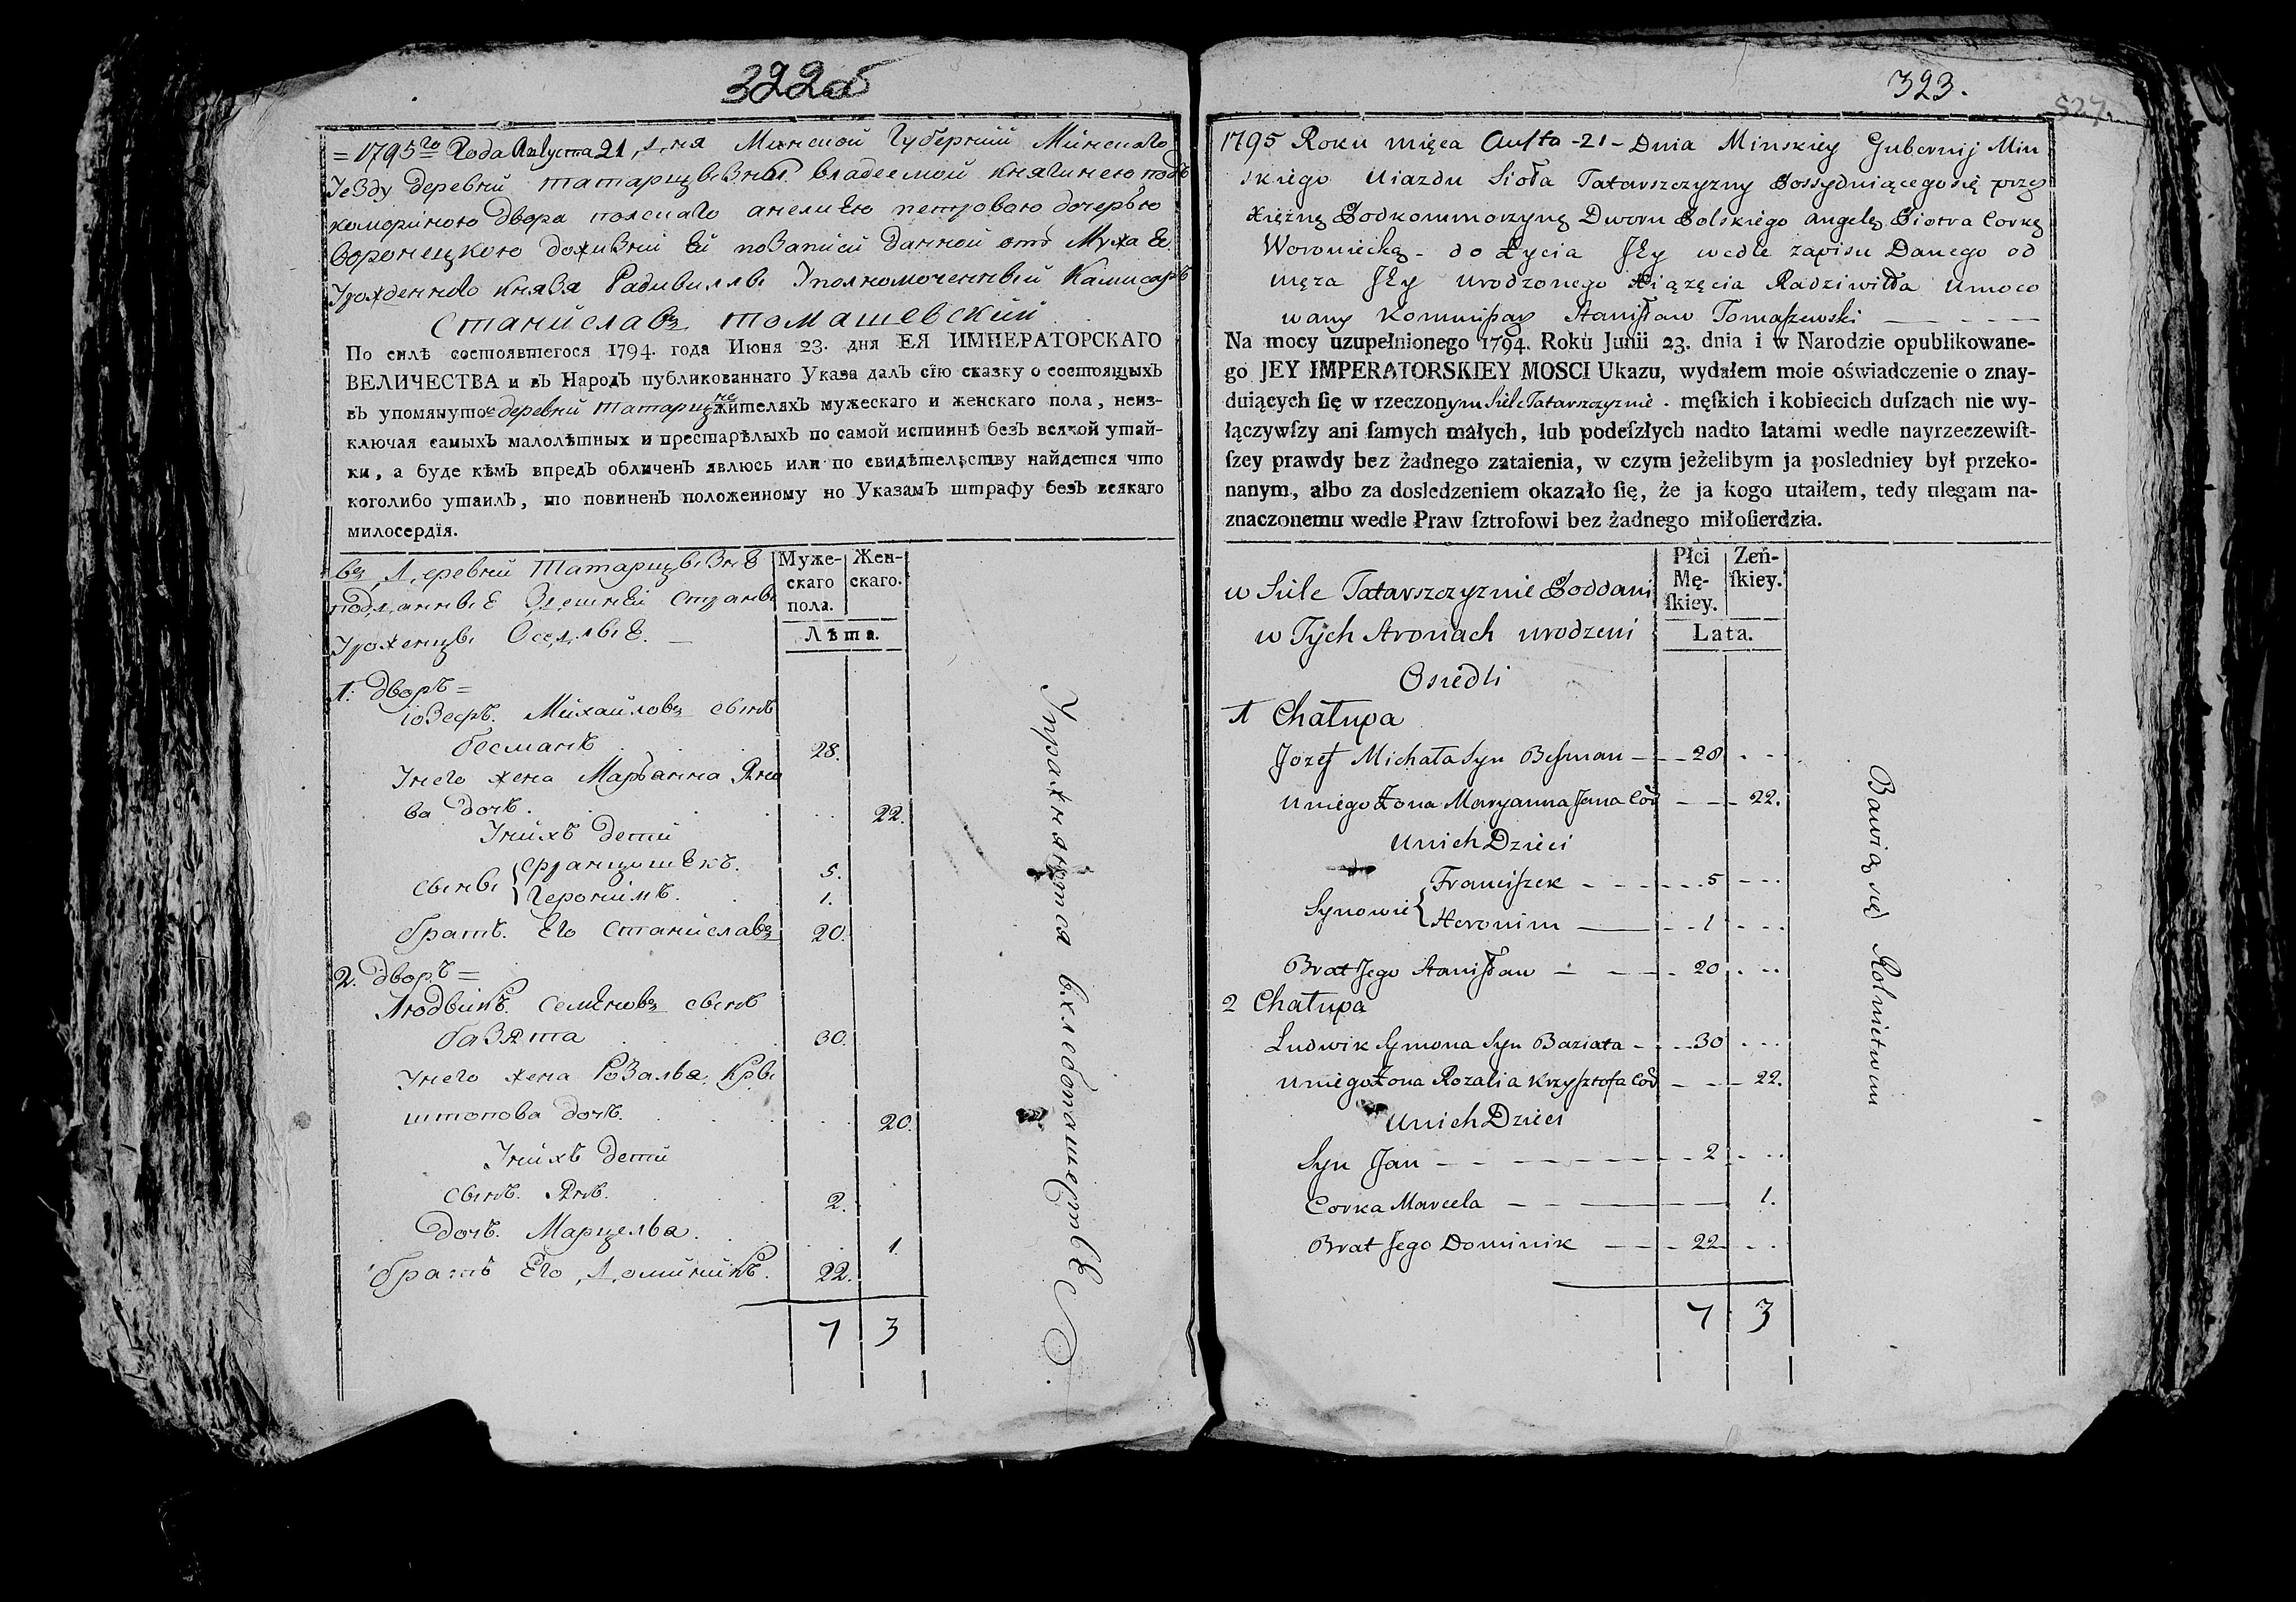 322об
= 1795го Года Августа 21 дня Минской Губернии Минскаго
Уезду деревни татарщывзны владеемой княгинею подъ
комориною двора полскаго анелиею петровою дочерью
воронецкою доживнй ей позаписи данной отъ Мужа Ее
Урожденного князя Радивиллы Уполномоченный Камисаръ
Станиславъ томашевский
По силѣ состоявшегося 1794. года Июня 23. дня ЕЯ ИМПЕРАТОРСКАГО
ВЕЛИЧЕСТВА и въ Народъ публикованнаго Указа далъ сїю сказку о состоящыхъ
въ упомянутое деревни татарщызне жителяхъ мужескаго и женскаго пола, неиз-
ключая самыхъ малолѣтныхъ и престарѣлыхъ по самой истиннѣ безъ всякой утай-
ки, а буде кѣмъ впредъ обличенъ явлюсь или по свидѣтельству найдется что
коголибо утаилъ, то повиненъ положенному по Указамъ штрафу безъ всякаго
милосердїя.
въ Деревни Татарщывзне
подданные Здешней страны
Уроженцы Оседлые. —
Муже-
скаго
пола.
Жен-
скаго.
Лѣта.
1. дворъ =
Іозефъ. Михайловъ сынъ
бесманъ . . . 28.
Унего жена Марьанна Яно
ва дочъ. . . . 22.
Унихъ дети
сыны { францишекъ. 5.
Героніимъ. 1.
братъ. Его станиславъ 20.
2. дворъ =
Людвикъ. семеновъ сынъ
базята 30.
Унего жена Розалья Кры
штопова дочъ. . . . 20.
Унихъ дети
сынъ. Янъ. 2.
дочъ. Марцелья. 1.
братъ Его Доминикъ. 22.
7 3
Упражняются вхлебопашерстве
323.
527.
1795 Roku mięca Austa -21- Dnia Minskiey Gubernij Min
skiego Uiazdu Sioła Tatarszczyzny Possydniącegosię przez
Xiężnę Podkommorzynę Dworu Polskiego Angelę Piotra Corkę
Woroniecką - do Życia Jey wedle zapisu Danego od
męża Jey urodzonego Xiążęcia Radziwiłła Umoco
wany Kommissarz Stanisław Tomaszewski
Na mocy uzupełnionego 1794. Roku Junii 23. dnia i w Narodzie opublikowane-
go JEY IMPERATORSKIEY MOSCI Ukazu, wydałem moie oświadczenie o znay-
duiących ſię w rzeczonym Siele Tatarszczyznie. męſkich i kobiecich duſzach nie wy-
łączywſzy ani ſamych małych, lub podeſzłych nadto latami wedle nayrzeczewiſt-
ſzey prawdy bez żadnego zataienia, w czym jeżelibym ja posledniey był przeko-
nanym, albo za dosledzeniem okazało ſię, że ja kogo utaiłem, tedy ulegam na-
znaczonemu wedle Praw ſztrofowi bez żadnego miłoſierdzia.
w Siele Tatarszczyznie Poddani
w Tych stronach urodzeni
Osiedli
Płci
Mę-
ſkiey.
Zeń-
ſkiey.
Lata.
1 Chałupa
Jozef Michała Syn Besman — 28
Uniego Żona Maryanna Jana Cór — 22.
Unich Dzieci
Synowie { Franciszek — 5
Heronim — 1
Brat Jego Stanisław — 20
2 Chałupa
Ludwik Symona Syn Baziata — 30
Uniego Żona Rozalia Krzysztofa Cór — 22.
Unich Dzieci
Syn Jan — 2
Corka Marcela — 1.
Brat Jego Dominik — 22
7 3
Bawią się Rolnictwem